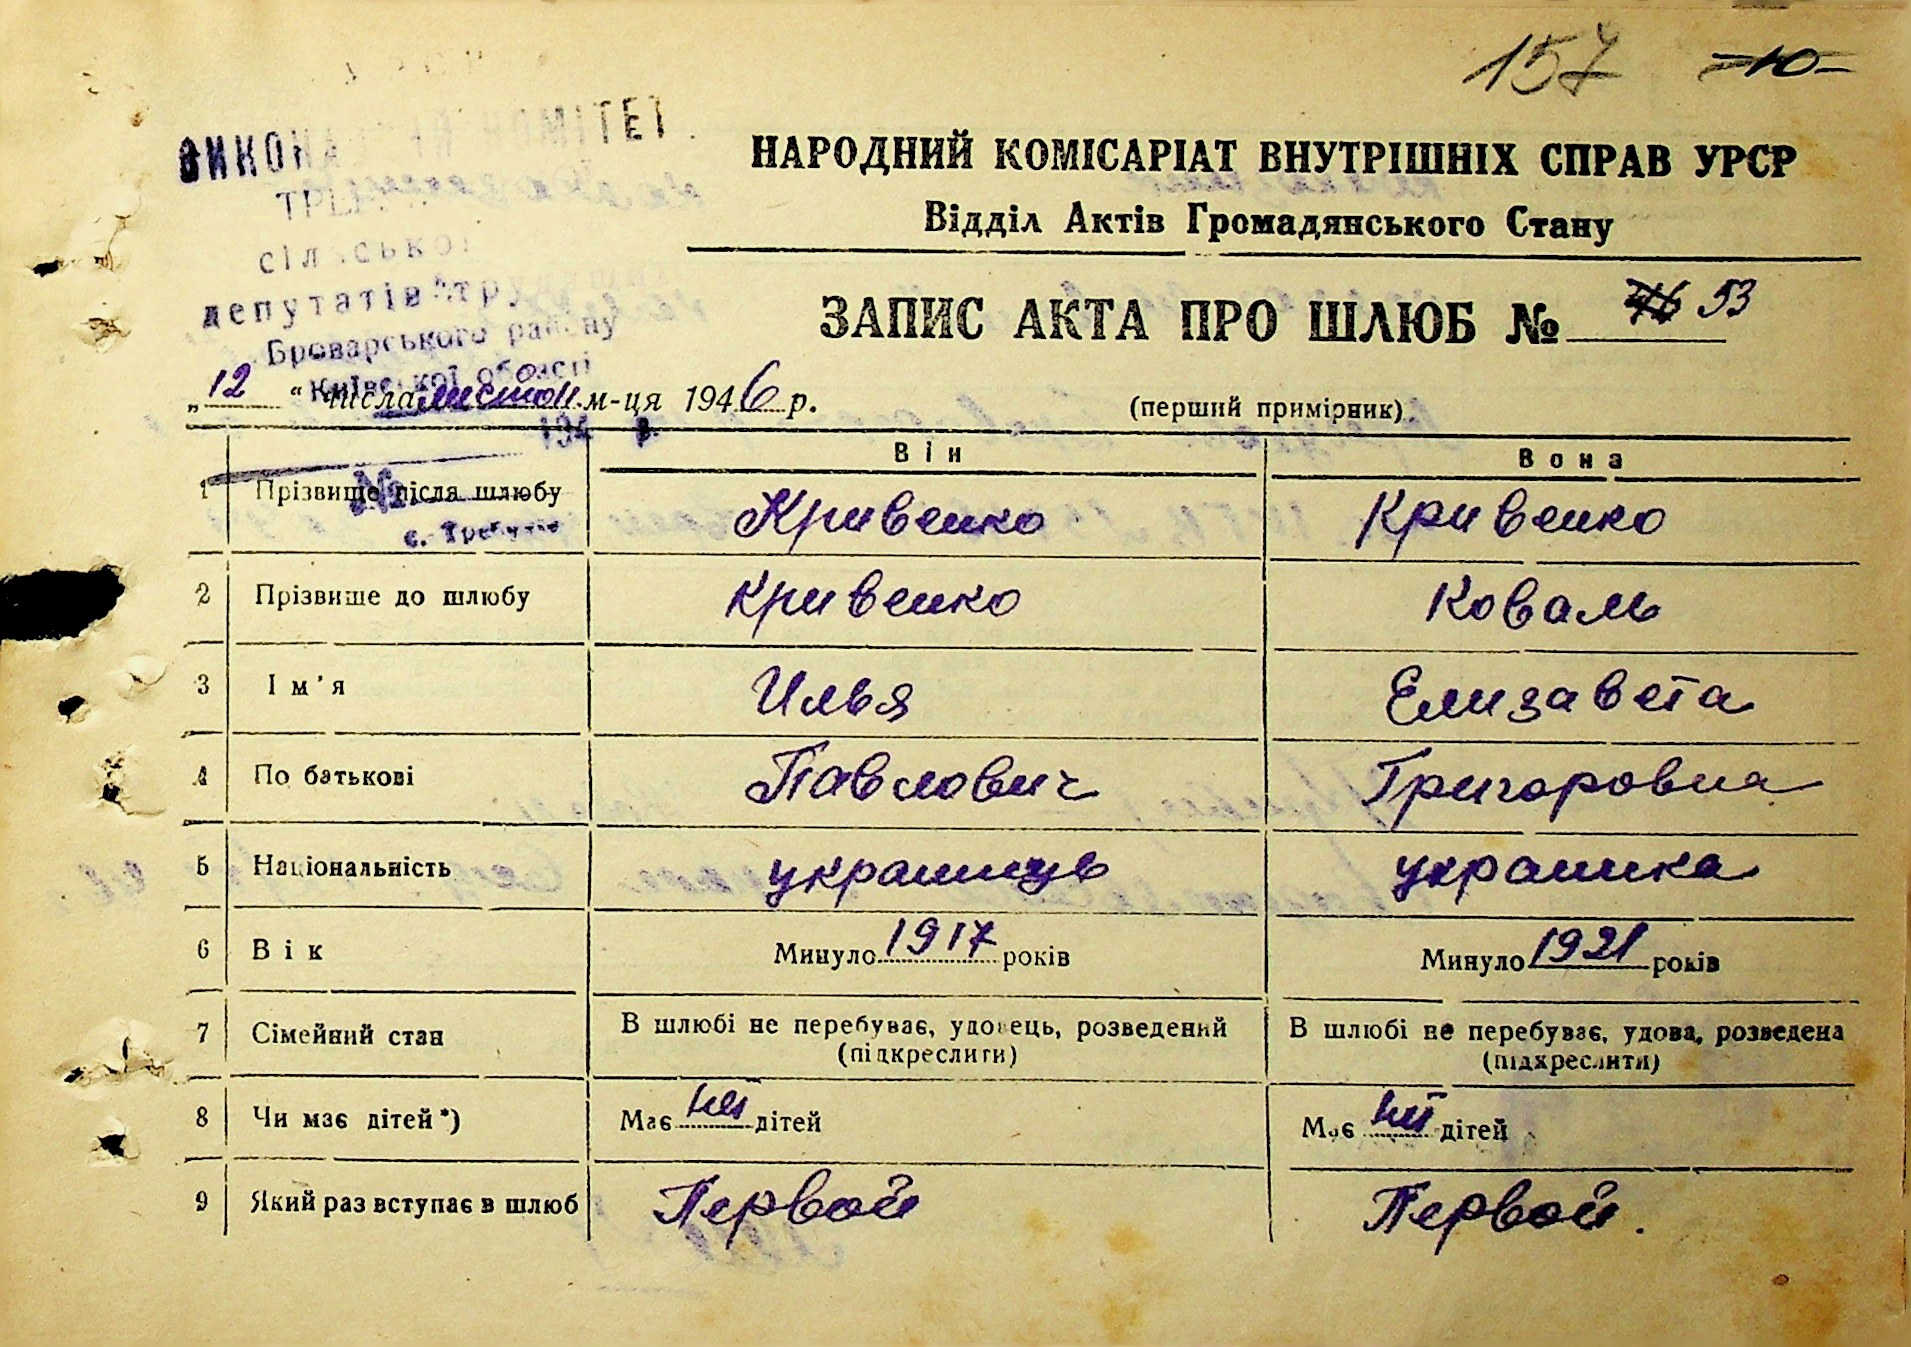 157 10
ВИКОНАВЧИЙ КОМІТЕТ
сільської
депутатів трудящих
Броварського району
Київської області
194 р.
№
с. Требухів
НАРОДНИЙ КОМІСАРІАТ ВНУТРІШНІХ СПРАВ УРСР
Відділ Актів Громадянського Стану
ЗАПИС АКТА ПРО ШЛЮБ № 46 53
„12“ числа листоп. м-ця 1946 р.
(перший примірник)
Він Вона
1 Прізвище після шлюбу Кривенко Кривенко
2 Прізвише до шлюбу Кривенко Коваль
3 Ім'я Илья Елизавета
4 По батькові Павлович Григоровна
5 Національність украинць украинка
6 Вік Минуло 1917 років Минуло 1921 років
7 Сімейний стан В шлюбі не перебуває, удовець, розведений В шлюбі не перебуває, удова, розведена
(підкреслити) (підкреслити)
8 Чи має дітей*) Має дітей Має дітей
9 Який раз вступає в шлюб Первой Первой.